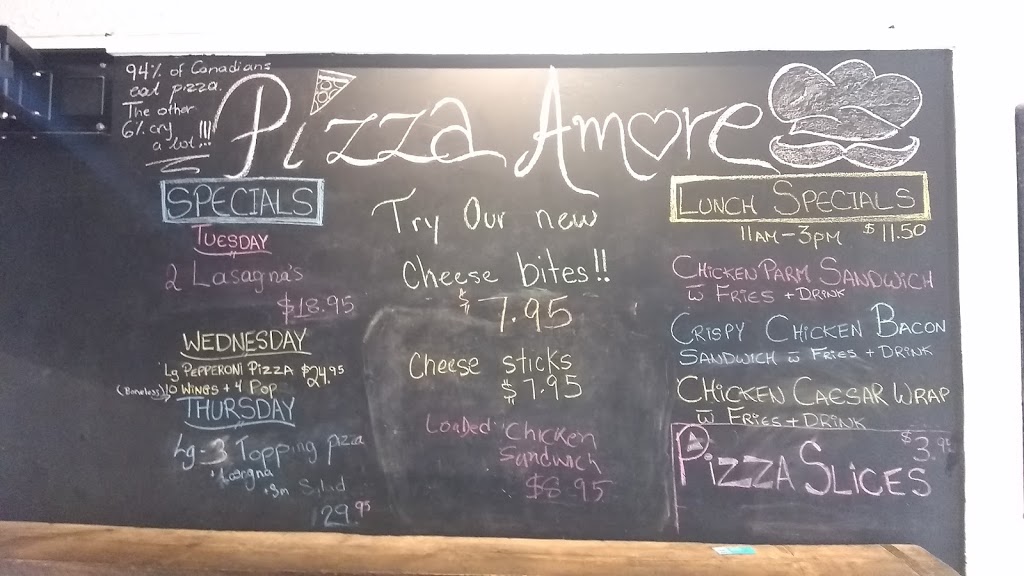 94% of Canadians
eat pizza.
The other
6% cry
a lot!!!
Pizza Amore
SPECIALS
TUESDAY
2 Lasagna's
$18.95
WEDNESDAY
Lg PEPPERONI PIZZA $24.95
(Boneless) 10 WINGS + 4 POP
THURSDAY
Lg-3 Topping pizza
+ Lasagna
+ Sm Salad
29.95
Try Our new
cheese bites!!
$7.95
Cheese sticks
$7.95
Loaded Chicken
Sandwich
$8.95
LUNCH SPECIALS
11AM-3PM $11.50
CHICKEN PARM SANDWICH
w FRIES + DRINK
CRISPY CHICKEN BACON
SANDWICH w FRIES + DRINK
CHICKEN CAESAR WRAP
w FRIES + DRINK
$3.95
PIZZA SLICES